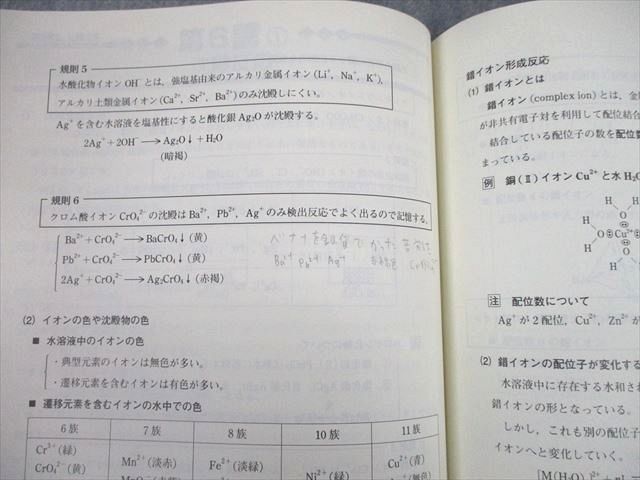 規則 5
水酸化物イオン OH⁻ とは，強塩基由来のアルカリ金属イオン(Li⁺, Na⁺, K⁺),
アルカリ土類金属イオン(Ca²⁺, Sr²⁺, Ba²⁺)のみ沈殿しにくい。
Ag⁺を含む水溶液を塩基性にすると酸化銀 Ag₂O が沈殿する。
2Ag⁺+2OH⁻ ⟶ Ag₂O↓+H₂O
(暗褐)
規則 6
クロム酸イオン CrO₄²⁻ の沈殿は Ba²⁺, Pb²⁺, Ag⁺ のみ検出反応でよく出るので記憶する。
Ba²⁺+CrO₄²⁻ ⟶ BaCrO₄↓(黄)
Pb²⁺+CrO₄²⁻ ⟶ PbCrO₄↓(黄)
2Ag⁺+CrO₄²⁻ ⟶ Ag₂CrO₄↓(赤褐)
Ba²⁺ Pb²⁺ Ag⁺
(2) イオンの色や沈殿物の色
■ 水溶液中のイオンの色
・典型元素のイオンは無色が多い。
・遷移元素を含むイオンは有色が多い。
■ 遷移元素を含むイオンの水中での色
6 族 7 族 8 族 10 族 11 族
Cr³⁺(緑)
CrO₄²⁻(黄) Mn²⁺(淡赤) Fe²⁺(淡緑) Ni²⁺(緑) Cu²⁺(青)
錯イオン形成反応
(1) 錯イオンとは
錯イオン(complex ion)とは，金
が非共有電子対を利用して配位結合
結合している配位子の数を配位
まっている。
例 銅(Ⅱ)イオン Cu²⁺ と水 H₂O
H H
O Cu²⁺
注 配位数について
Ag⁺ が 2 配位，Cu²⁺, Zn²⁺ が
(2) 錯イオンの配位子が変化する
水溶液中に存在する水和さ
イオンの形となっている。
しかし，これも別の配位子
イオンへと変化していく。